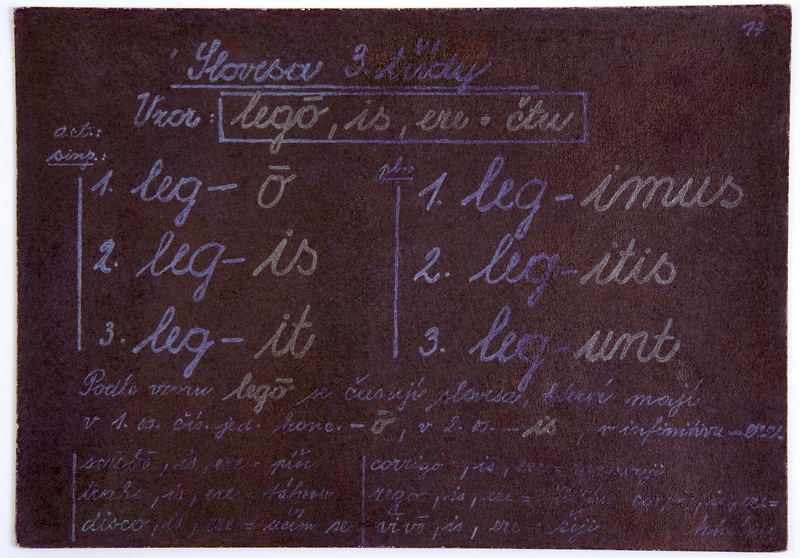 17
Slovesa 3. třídy
Vzor: legō, is, ere = čtu
act.:
sing.: pl.:
1. leg- ō 1. leg- imus
2. leg- is 2. leg- itis
3. leg- it 3. leg- unt
Podle vzoru legō se časují slovesa, která mají
v 1. os. čís. jed. konc. - ō, v 2. os. - is, v infinitivu - ere.
scribō, is, ere = píši corrigo, is, ere =
traho, is, ere = táhnu rego, is, ere =
disco, is, ere = učím se vivō, is, ere = žiji